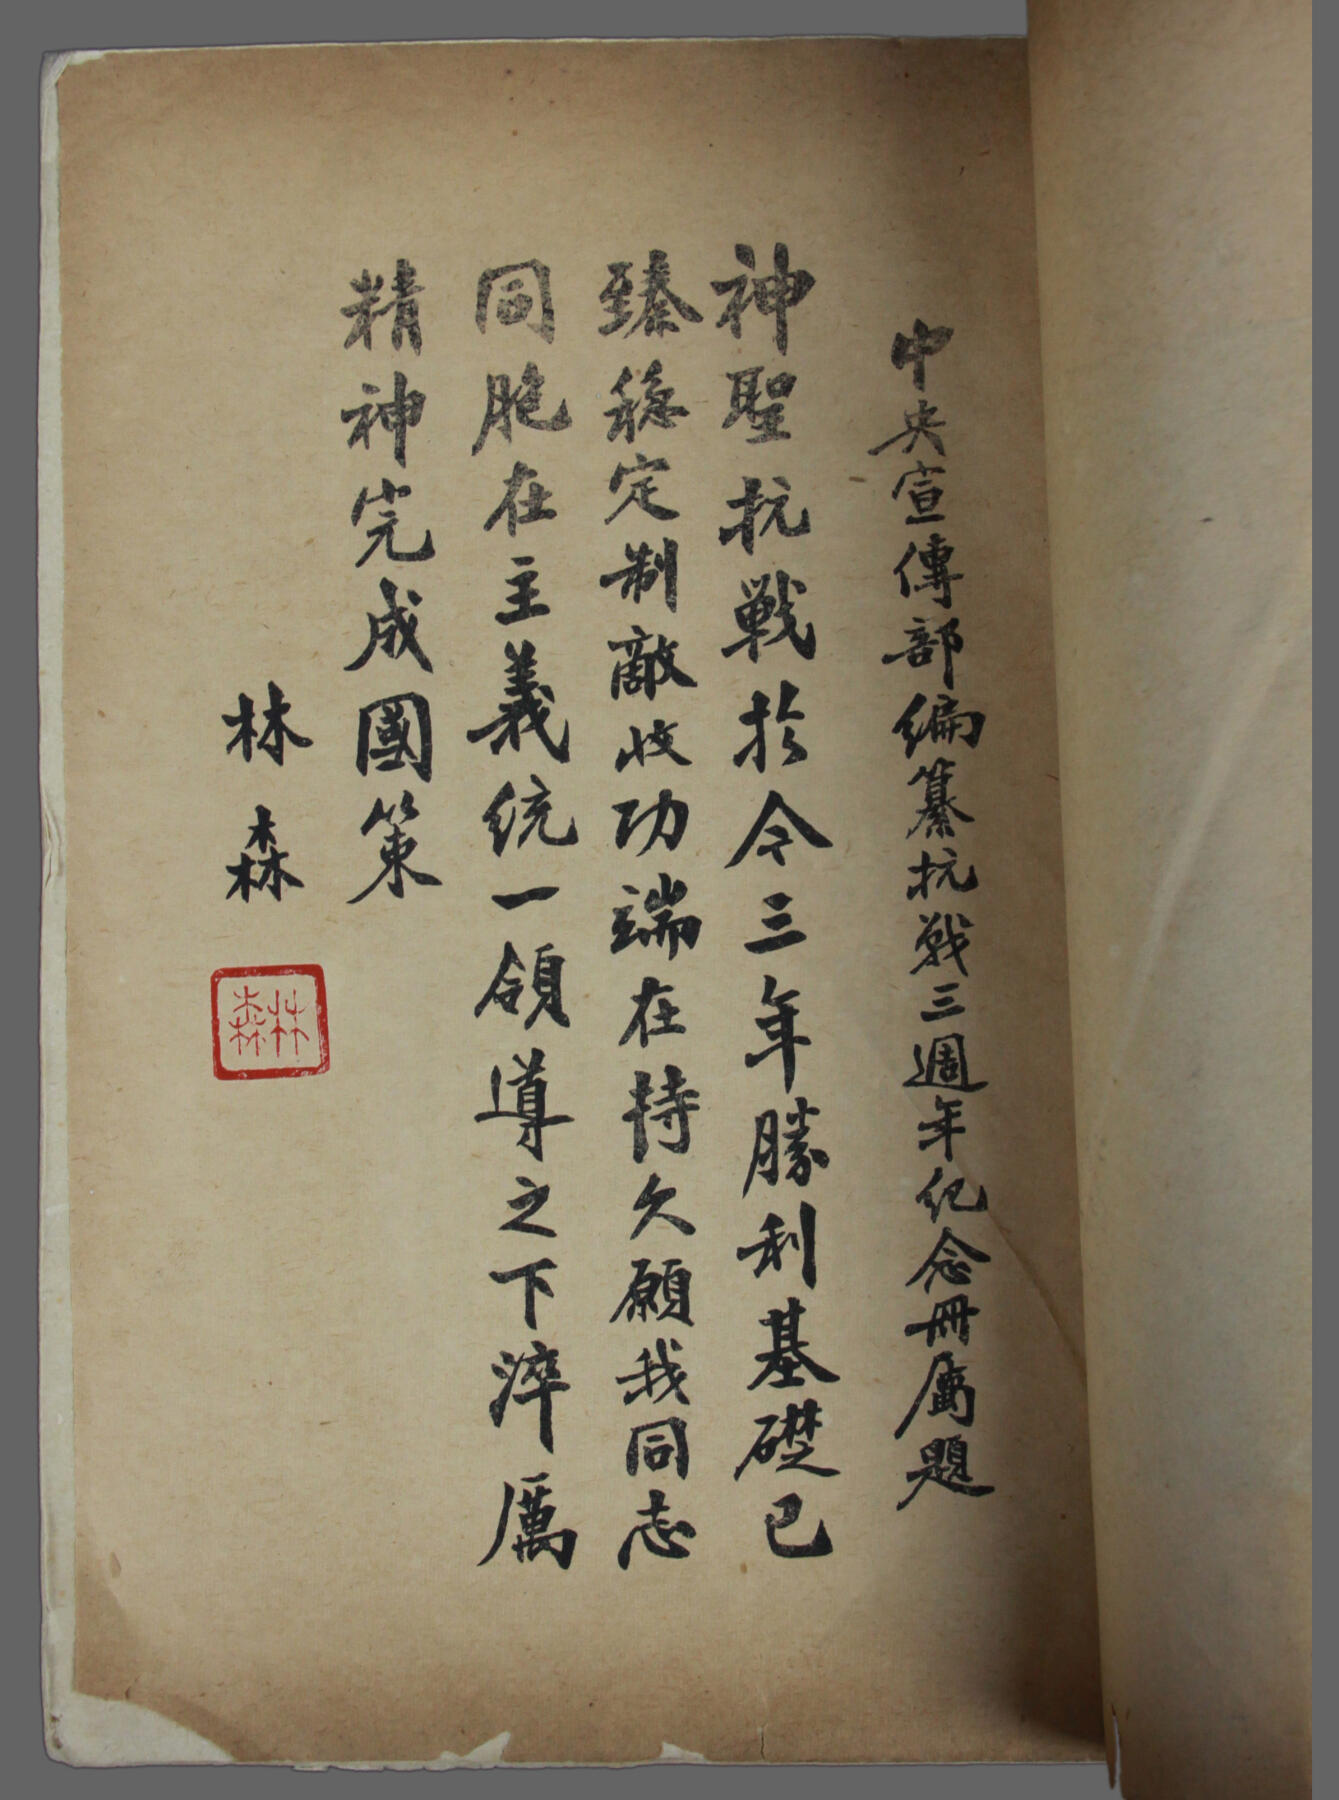 中央宣傳部編纂抗戰三週年紀念冊屬題
神聖抗戰於今三年勝利基礎已
臻穩定制敵收功端在持久願我同志
同胞在主義統一領導之下淬厲
精神完成國策
林森
林森